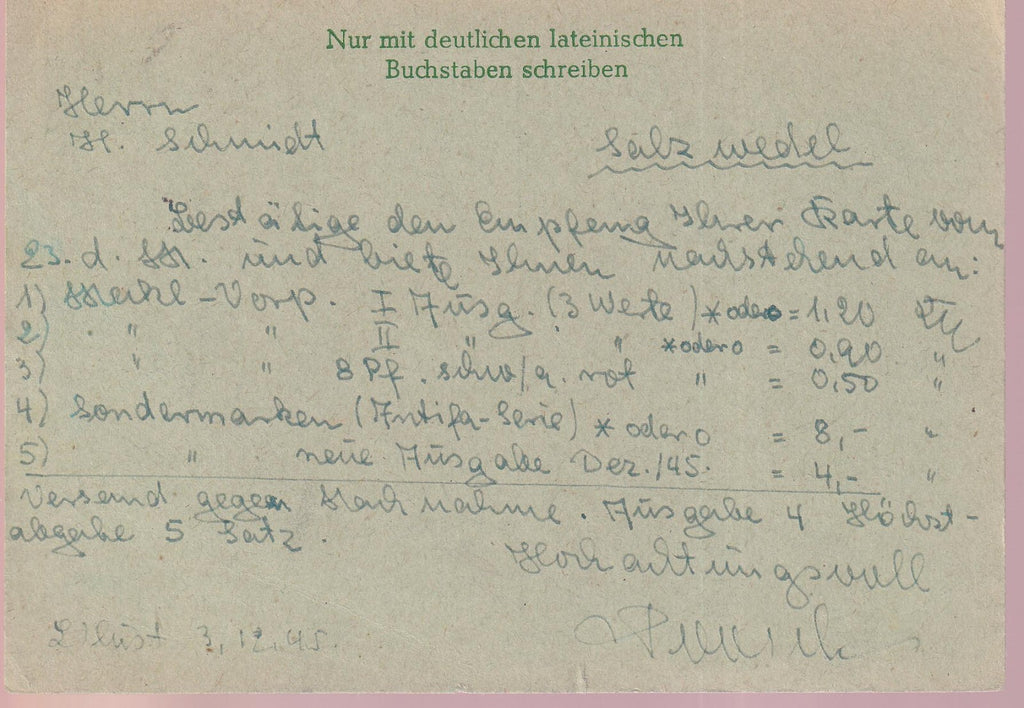 Nur mit deutlichen lateinischen
Buchstaben schreiben
Herrn
H. Schmidt Salzwedel
Bestätige den Empfang Ihrer Karte vom
23. d. M. und biete Ihnen nachstehend an:
1) Meckl-Vorp. I Ausg. (3 Werte) * oder o = 1,20 RM
2) " " II " " * oder o = 0,90 "
3) " " 8 Pf. schw/a. rot " = 0,50 "
4) Sondermarken (Antifa-Serie) * oder o = 8,- "
5) " neue Ausgabe Dez./45. = 4,- "
Versand gegen Nachnahme. Ausgabe 4 Höchst-
abgabe 5 Satz.
Hochachtungsvoll
3.12.45.